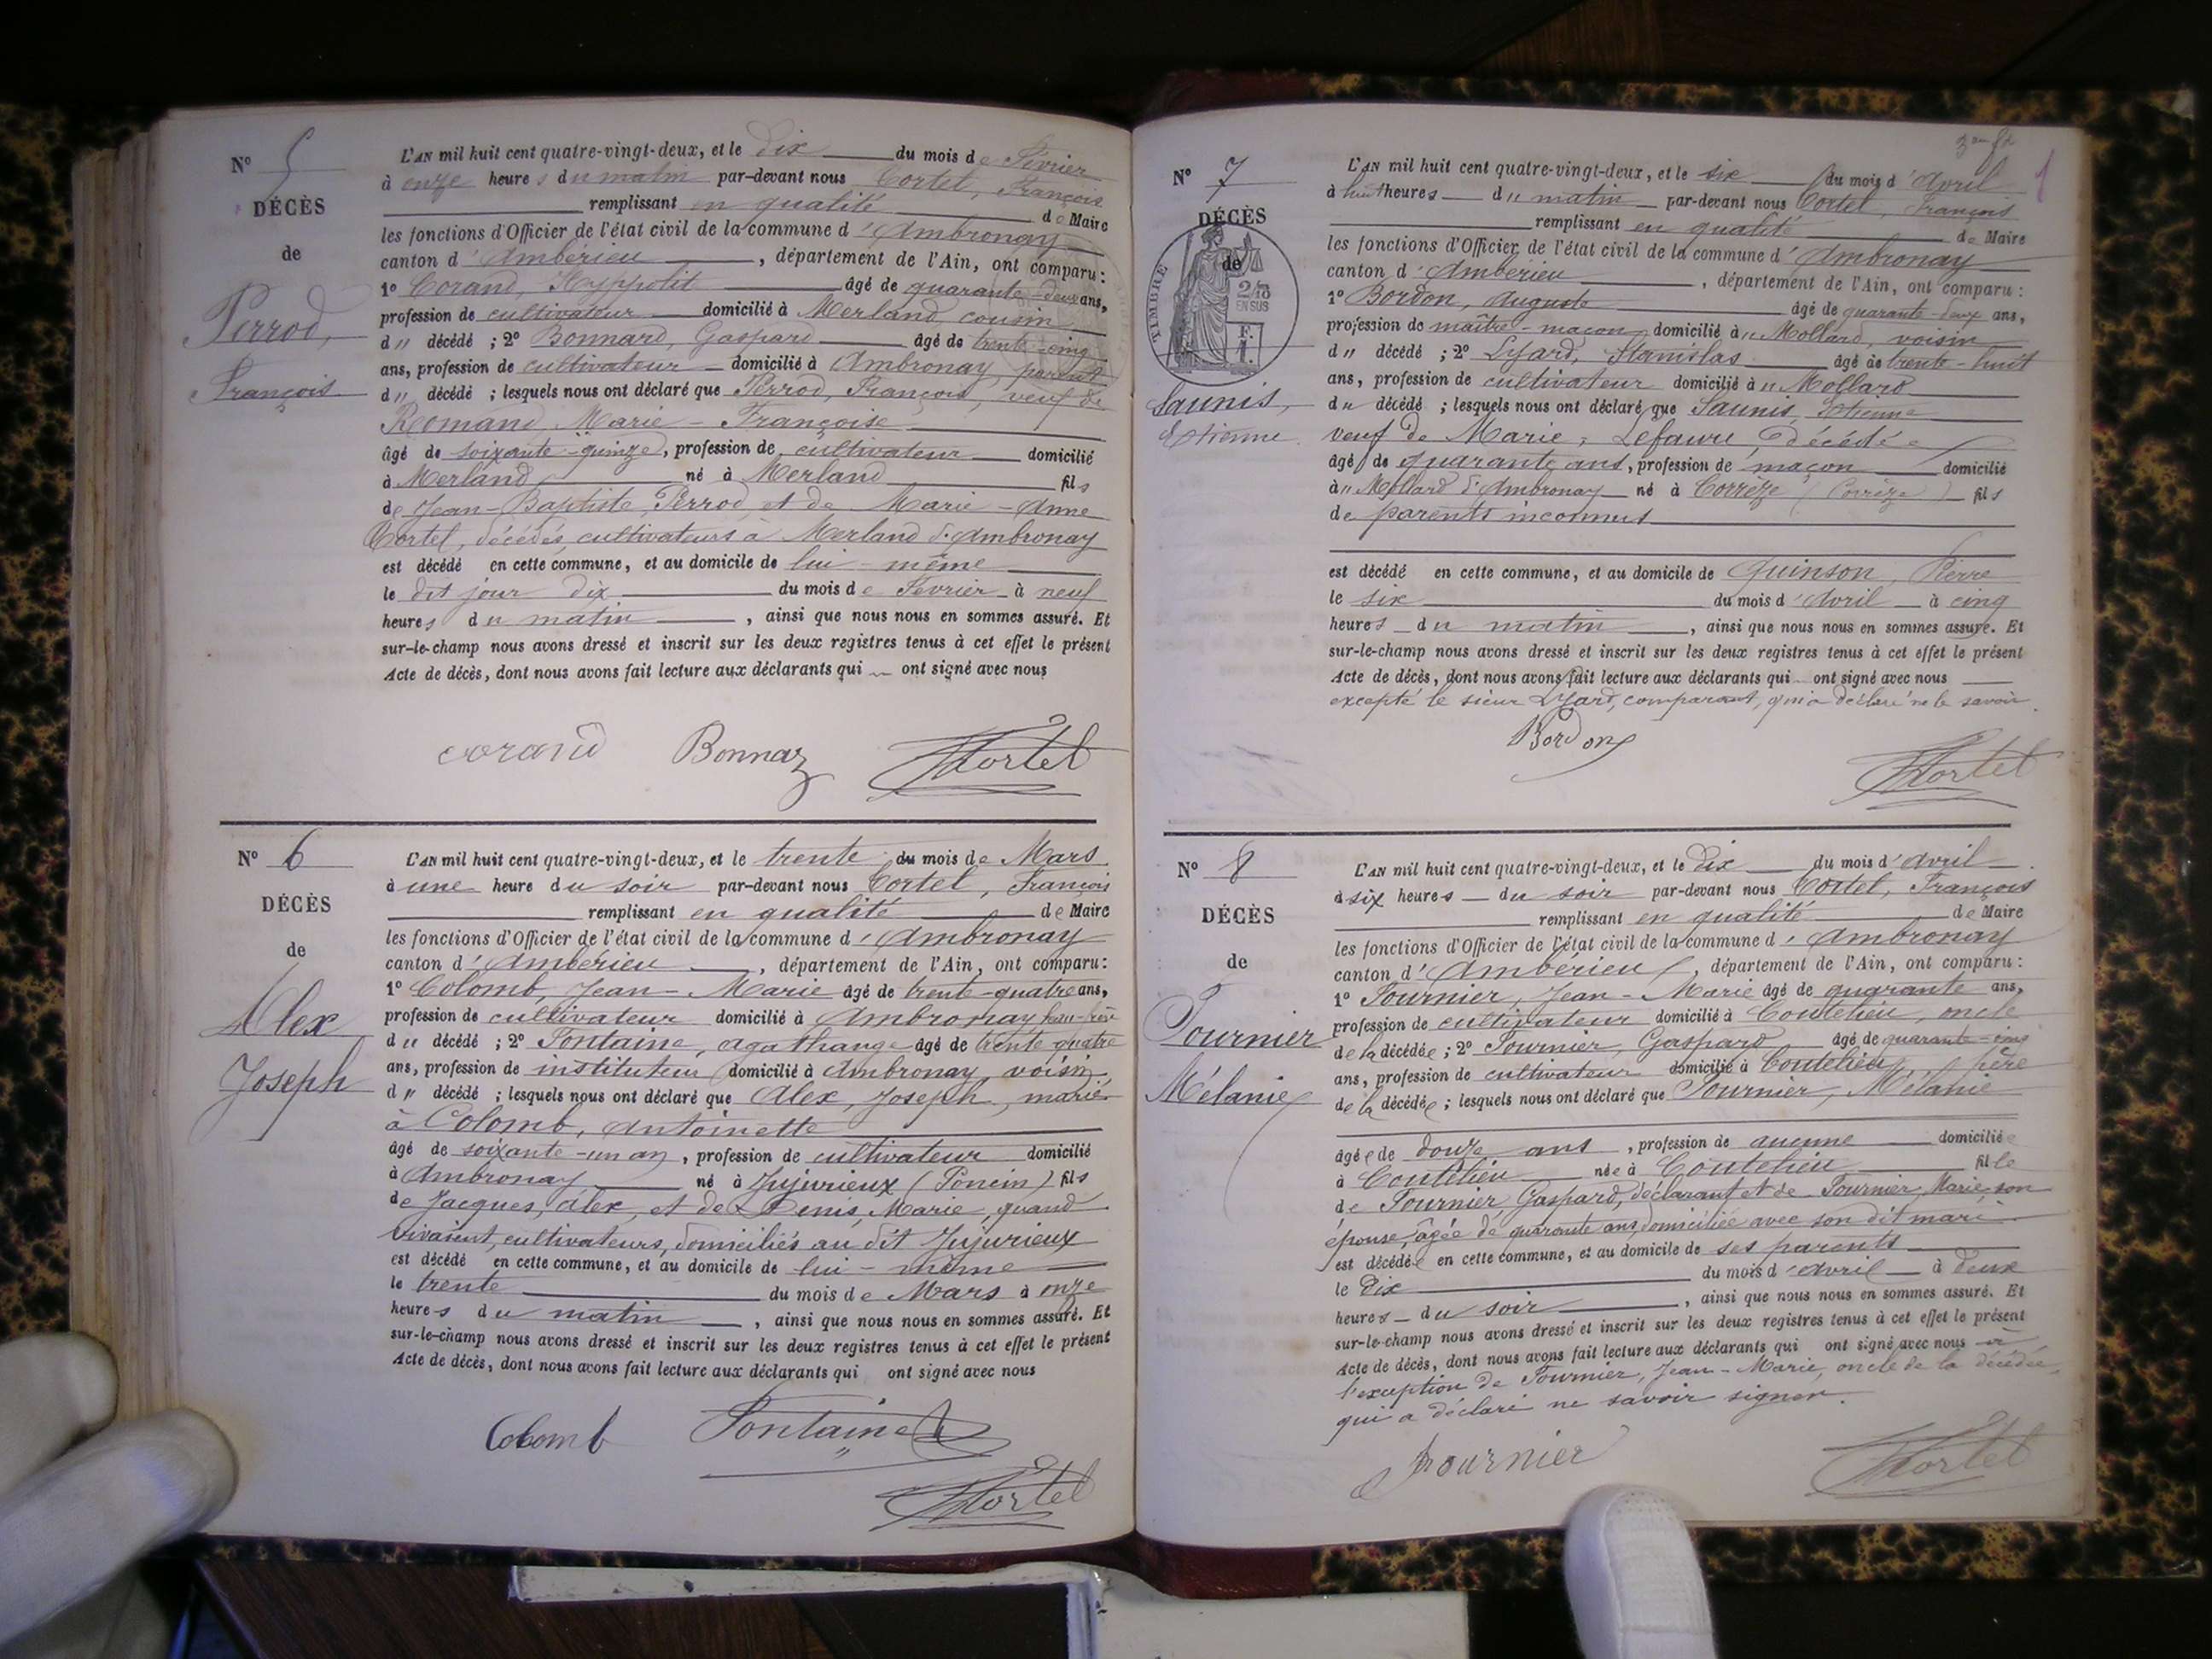 N° 5
DÉCÈS
de
Perrod,
François
L'AN mil huit cent quatre-vingt-deux, et le dix du mois de Février
à onze heures du matin par-devant nous Cortel, François
remplissant en qualité de Maire
les fonctions d'Officier de l'état civil de la commune d'Ambronay
canton d'Ambérieu, département de l'Ain, ont comparu:
1° Corand, Hyppolit âgé de quarante-deux ans,
profession de cultivateur domicilié à Merland, cousin
du décédé; 2° Bonnard, Gaspard âgé de trente-cinq
ans, profession de cultivateur domicilié à Ambronay, parent
du décédé; lesquels nous ont déclaré que Perrod, François, veuf de
Romand Marie-Françoise
âgé de soixante-quinze, profession de cultivateur domicilié
à Merland né à Merland fils
de Jean-Baptiste Perrod et de Marie-Anne
Cortel, décédés, cultivateurs à Merland d'Ambronay
est décédé en cette commune, et au domicile de lui-même
le dit jour dix du mois de Février à neuf
heures du matin, ainsi que nous nous en sommes assuré. Et
sur-le-champ nous avons dressé et inscrit sur les deux registres tenus à cet effet le présent
Acte de décès, dont nous avons fait lecture aux déclarants qui ont signé avec nous
corand Bonnaz Cortel
N° 6
DÉCÈS
de
Alex
Joseph
L'AN mil huit cent quatre-vingt-deux, et le trente du mois de Mars
à une heure du soir par-devant nous Cortel, François
remplissant en qualité de Maire
les fonctions d'Officier de l'état civil de la commune d'Ambronay
canton d'Ambérieu, département de l'Ain, ont comparu:
1° Colomb, Jean-Marie âgé de trente-quatre ans,
profession de cultivateur domicilié à Ambronay beau-frère
du décédé; 2° Fontaine, Agathange âgé de trente quatre
ans, profession de instituteur domicilié à Ambronay, voisin
du décédé; lesquels nous ont déclaré que Alex, Joseph, marié
à Colomb, Antoinette
âgé de soixante-un an, profession de cultivateur domicilié
à Ambronay né à Jujurieux (Poncin) fils
de Jacques, Alex, et de Denis, Marie, quand
vivaient, cultivateurs, domiciliés au dit Jujurieux
est décédé en cette commune, et au domicile de lui-même
le trente du mois de Mars à onze
heures du matin, ainsi que nous nous en sommes assuré. Et
sur-le-champ nous avons dressé et inscrit sur les deux registres tenus à cet effet le présent
Acte de décès, dont nous avons fait lecture aux déclarants qui ont signé avec nous
Colomb Fontaine
Cortel
N° 7
DÉCÈS
de
TIMBRE
2/10
EN SUS
F.
1.
Saunis,
Etienne
L'AN mil huit cent quatre-vingt-deux, et le six du mois d'Avril
à huit heures du matin par-devant nous Cortel, François
remplissant en qualité de Maire
les fonctions d'Officier de l'état civil de la commune d'Ambronay
canton d'Ambérieu, département de l'Ain, ont comparu:
1° Bordon, Auguste âgé de quarante-deux ans,
profession de maître-maçon domicilié à " Mollard, voisin
du décédé; 2° Lyard, Stanislas âgé de trente-huit
ans, profession de cultivateur domicilié à " Mollard
du décédé; lesquels nous ont déclaré que Saunis, Etienne
veuf de Marie, Lefaure, décédée
âgé de quarante ans, profession de maçon domicilié
à " Mollard d'Ambronay né à Corrèze (Corrèze) fils
de parents inconnus
est décédé en cette commune, et au domicile de Quinson, Pierre
le six du mois d'Avril à cinq
heures du matin, ainsi que nous nous en sommes assuré. Et
sur-le-champ nous avons dressé et inscrit sur les deux registres tenus à cet effet le présent
Acte de décès, dont nous avons fait lecture aux déclarants qui ont signé avec nous
excepté le sieur Lyard, comparant, qui a déclaré ne le savoir.
Bordon
Cortel
N° 8
DÉCÈS
de
Fournier
Mélanie
L'AN mil huit cent quatre-vingt-deux, et le dix du mois d'Avril
à six heures du soir par-devant nous Cortel, François
remplissant en qualité de Maire
les fonctions d'Officier de l'état civil de la commune d'Ambronay
canton d'Ambérieu, département de l'Ain, ont comparu:
1° Fournier, Jean-Marie âgé de quarante ans,
profession de cultivateur domicilié à Coutelieu, oncle
de la décédée; 2° Fournier, Gaspard âgé de quarante-cinq
ans, profession de cultivateur domicilié à Coutelieu, père
de la décédée; lesquels nous ont déclaré que Fournier, Mélanie
âgée de douze ans, profession de aucune domiciliée
à Coutelieu née à Coutelieu fille
de Fournier, Gaspard, déclarant et de Fournier, Marie, son
épouse, âgée de quarante ans, domiciliée avec son dit mari
est décédée en cette commune, et au domicile de ses parents
le dix du mois d'Avril à deux
heures du soir, ainsi que nous nous en sommes assuré. Et
sur-le-champ nous avons dressé et inscrit sur les deux registres tenus à cet effet le présent
Acte de décès, dont nous avons fait lecture aux déclarants qui ont signé avec nous à
l'exception de Fournier, Jean-Marie, oncle de la décédée,
qui a déclaré ne savoir signer.
Fournier Cortel